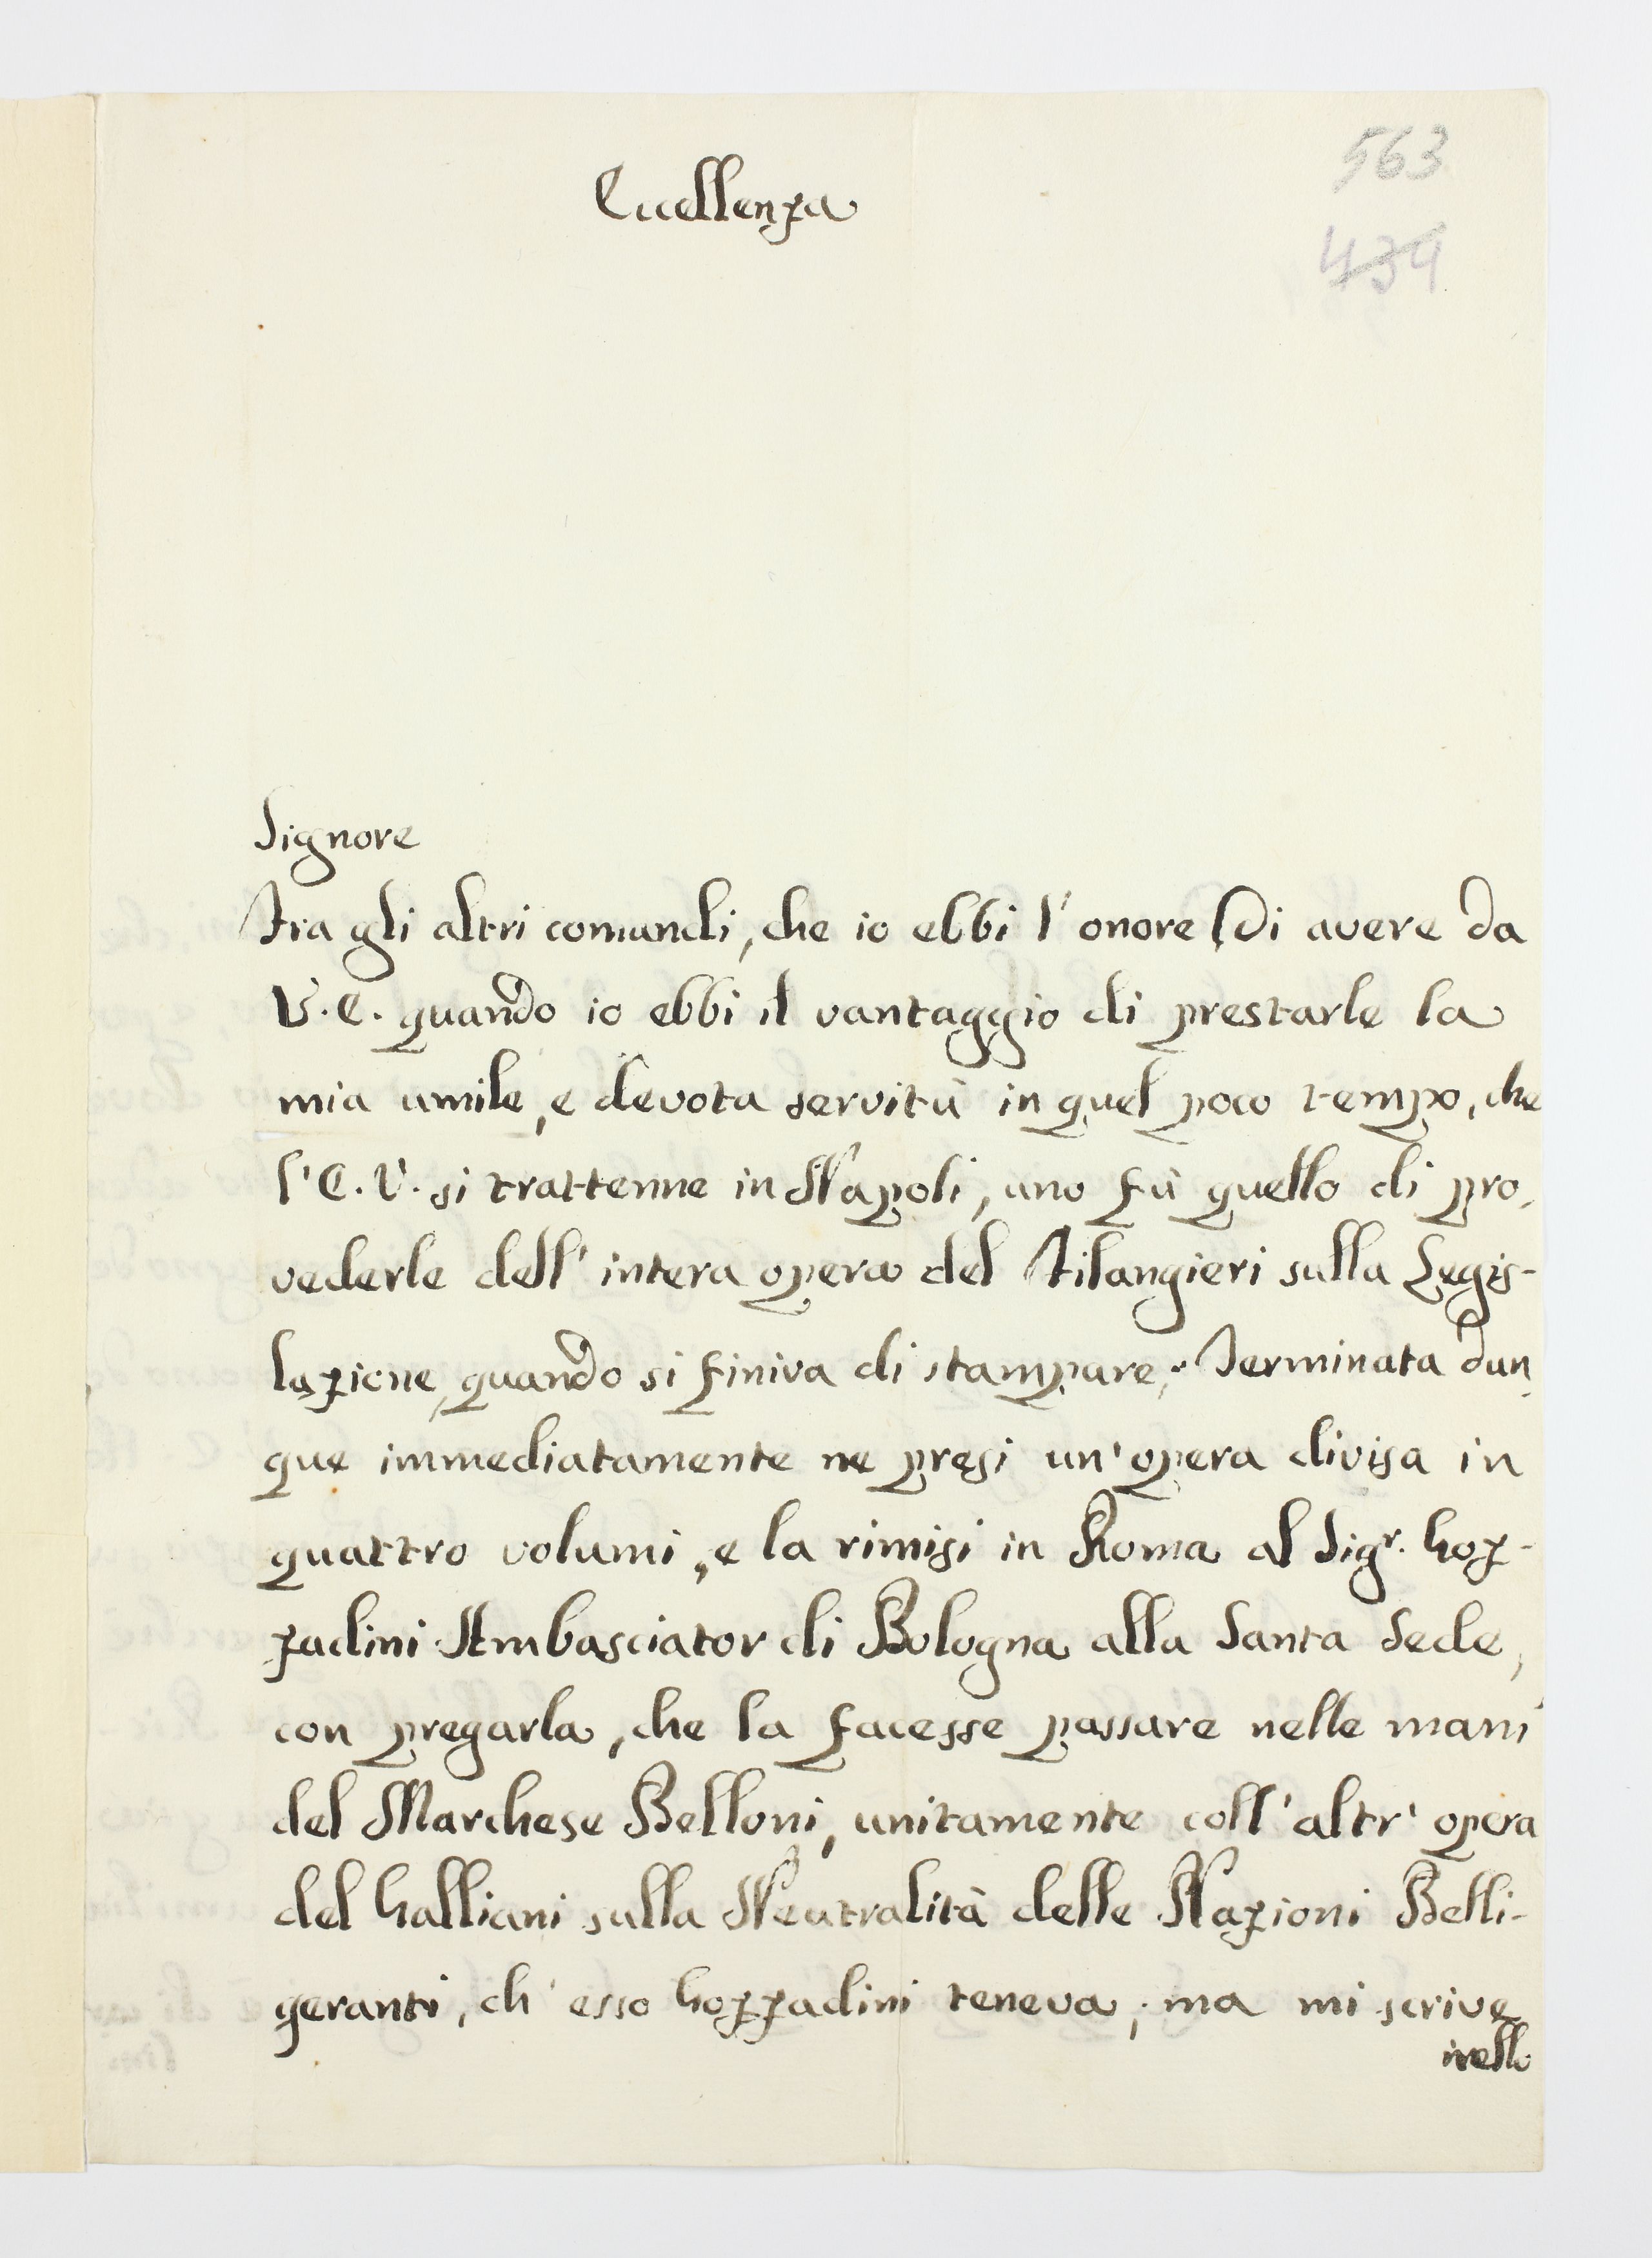 563
Eccellenza
434
Signore
Fra gli altri comandi, che io ebbi l'onore di avere da
V. E. quando io ebbi il vantaggio di prestarle la
mia umile, e devota servitù in quel poco tempo, che
l'E. V. si trattenne in Napoli, uno fù quello di pro,
vederle dell'intera opera del Filangieri sulla Legis-
lazione, quando si finiva di stampare; Terminata dun,
que immediatamente ne presi un'opera divisa in
quattro volumi, e la rimisi in Roma al Sigr. Goz-
zadini Ambasciator di Bologna alla Santa Sede,
con pregarla, che la facesse passare nelle mani
del Marchese Belloni, unitamente coll'altr'opera
del Galliani sulla Neutralità delle Nazioni Belli-
geranti, ch'esso Gozzadini teneva; ma mi scrive